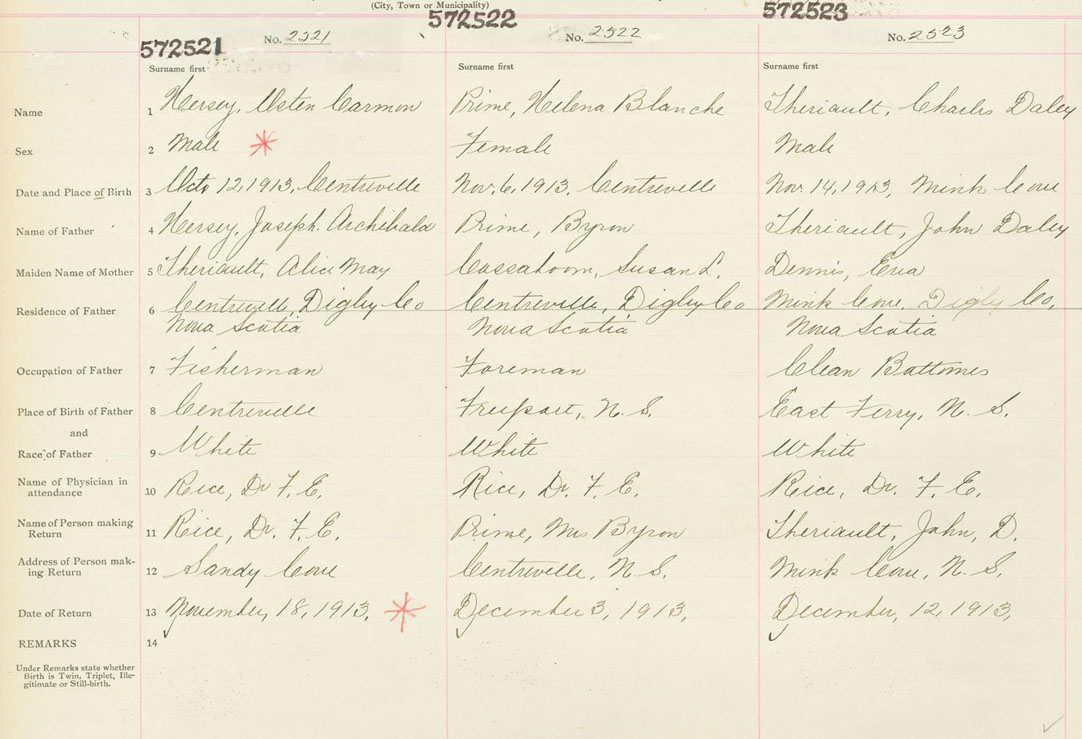 (City, Town or Municipality)
572521 572522 572523
No. 2521 No. 2522 No. 2523
Surname first Surname first Surname first
Name 1 Hersey, Osten Carmon Prime, Helena Blanche Theriault, Charles Daley
Sex 2 Male * Female Male
Date and Place of Birth 3 Octo 12, 1913, Centreville Nov. 6, 1913, Centreville Nov 14, 1913, Mink Cove
Name of Father 4 Hersey, Joseph Archibald Prime, Byron Theriault, John Daley
Maiden Name of Mother 5 Theriault, Alice May Cossaboom, Susan L. Dennis, Eva
Residence of Father 6 Centreville, Digby Co Centreville, Digby Co Mink Cove, Digby Co,
Nova Scotia Nova Scotia Nova Scotia
Occupation of Father 7 Fisherman Foreman Clean Bottoms
Place of Birth of Father 8 Centreville Freeport, N. S. East Ferry, N. S.
and
Race of Father 9 White White White
Name of Physician in
attendance 10 Rice, Dr F. E. Rice, Dr. F. E. Rice, Dr. F. E.
Name of Person making
Return 11 Rice, Dr. F. E. Prime, Mrs Byron Theriault, John, D.
Address of Person mak-
ing Return 12 Sandy Cove Centreville, N. S. Mink Cove, N. S.
Date of Return 13 November, 18, 1913, * December 3, 1913, December, 12, 1913,
REMARKS 14
Under Remarks state whether
Birth is Twin, Triplet, Ille-
gitimate or Still-birth.